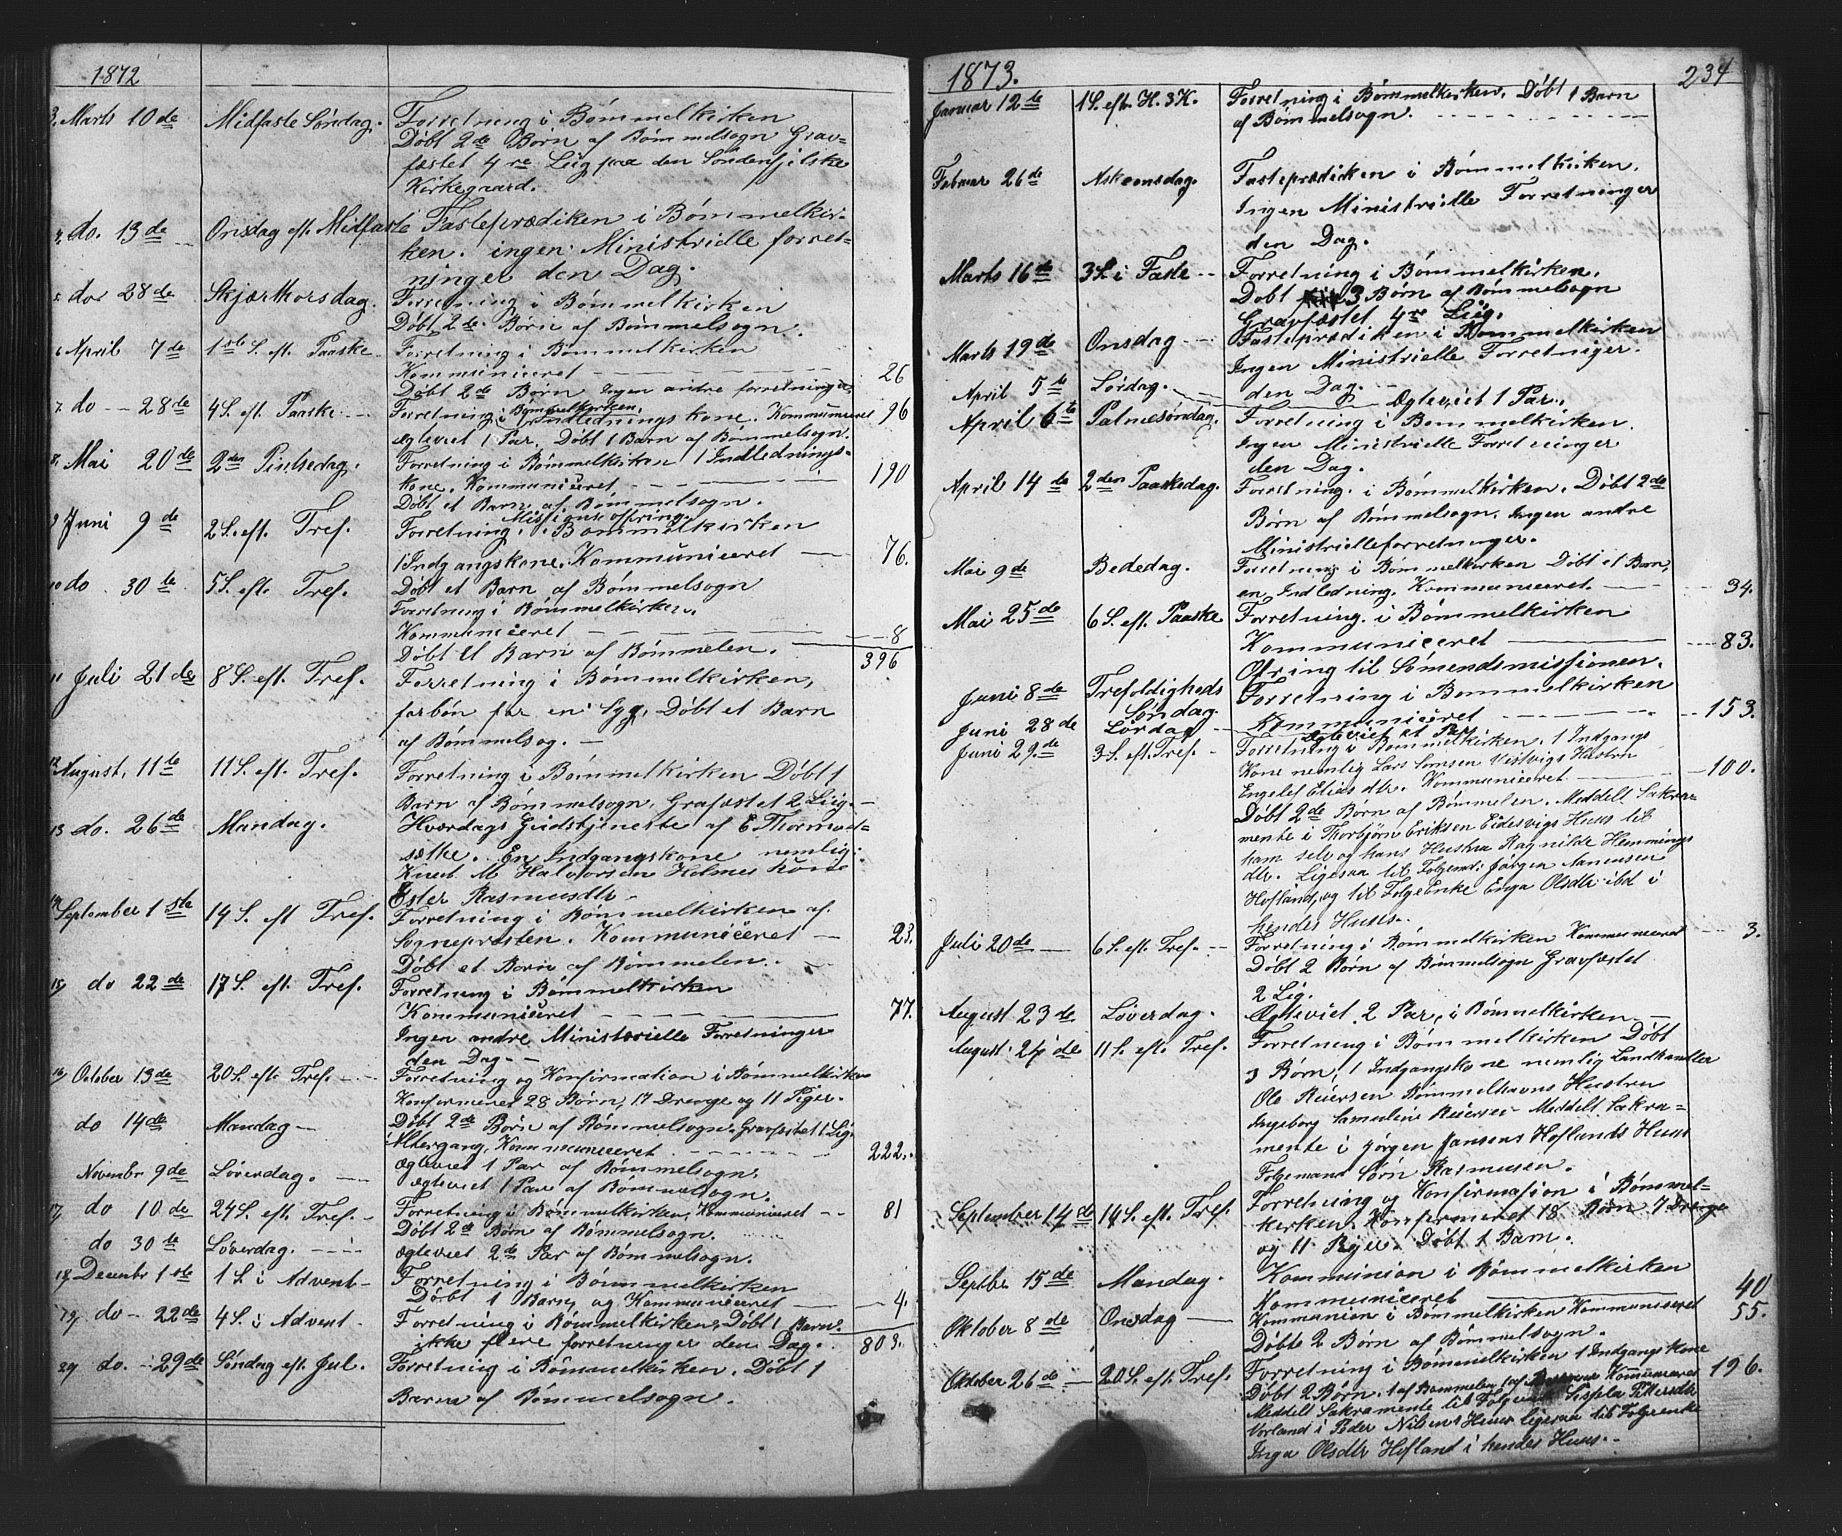 1872
3. Marts 10de Midfaste Søndag. Forretning i Bømmelkirken
Døbt 2de Børn af Bømmelsogn Grav-
fæstet 4re Liig paa den Søndenfjelske
Kirkegaard.
4. do. 13de Onsdag eft. Midfaste Fasteprædiken i Bømmelkir-
ken. ingen Ministrielle forret-
ninger den Dag.
28de Skjærthorsdag. Forretning i Bømmelkirken
Døbt 2de Børn af Bømmelsogn.
6 April 7de 1ste S. eft. Paaske Forretning i Bømmelkirken
Kommuniceret 26
Døbt 2de Børn Ingen andre forretninger
7. do 28de 4 S. eft. Paaske Forretning i Bømmelkirken,
1 Indledningskone. Kommuniceret 96
Ægteviet 1 Par, Døbt 1 Barn af Bømmelsogn.
8. Mai 20de 2den Pintsedag. Forretning i Bømmelkirken 1 Indlednings-
kone. Kommuniceret 190
Døbt et Barn af Bømmelsogn.
Missionsofring.
9 Juni 9de 2 S. eft. Tref. Forretning i Bømmelkirken
1 Indgangskone. Kommuniceret 76.
10 do 30te 5 S. eft. Tref. Døbt et Barn af Bømmelsogn
Forretning i Bømmelkirken.
Kommuniceret 8
Døbt et Barn af Bømmelen. 396
11 Juli 21de 8 S. eft. Tref. Forretning i Bømmelkirken,
forbøn for en Syg. Døbt et Barn
af Bømmelsog.
12 August, 11te 11 S. eft. Tref. Forretning i Bømmelkirken Døbt 1
Barn af Bømmelsogn, Grafæstet 2 Liig.
13 do. 26de Mandag. Hverdags Gudstjeneste af E Thormod-
sætke. En Indgangskone nemlig:
Knut M Halvorsen Holmes Kone
Ester Rasmusdtr
14 September 1ste 14 S. eft Tref. Forretning i Bømmelkirken af
Sognepresten. Kommuniceret 23.
Døbt et Barn af Bømmelen.
15 do 22de 17 S. eft. Tref. Forretning i Bømmelkirken
Kommuniceret 77.
Ingen andre Ministerielle Forretninger
den Dag.
16 October 13de 20 S. eft. Tref. Forretning og Konfirmation i Bømmelkirken
Konfirmeret 28 Børn, 17 Drenge og 11 Piger.
do 14de Mandag Døbt 2de Børn af Bømmelsogn. Gravfæstet 1 Lig.
Altergang, Kommuniceret 222.
Ægteviet 1 Par af Bømmelsogn,
Novembr 9de Løverdag. Ægteviet 1 Par af Bømmelsogn.
17 do 10de 24 S. eft. Tref. Forretning i Bømmelkirken, Kommuniceret 81
Døbt 2de Børn af Bømmelsogn.
do 30te Løverdag. Ægteviet 2de Par af Bømmelsogn.
18 Decembr 1ste 1 S. i Advent Forretning i Bømmelkirken
Døbt 1 Barn, og Kommuniceret 4.
19 do 22de 4 S. i Advent Forretning i Bømmelkirken, Døbt 1 Barn.
ikke flere forretninger den Dag. 803.
29 do. 29de Søndag eft Jul. Forretning i Bømmelkirken. Døbt 1
Barn af Bømmelsogn.
1873. 234
Januar 12te 1 S. eft. H. 3 K. Forretning i Bømmelkirken. Døbt 1 Barn
af Bømmelsogn.
Februar 26de Askeonsdag. Fasteprædiken i Bømmelkirken.
Ingen Ministrielle Forretninger
den Dag.
Marts 16de 3 S. i Faste Forretning i Bømmelkirken.
Døbt 3 Børn af Bømmelsogn
Gravfæstet 4re Liig.
Marts 19de Onsdag Fasteprædiken i Bømmelkirken
Ingen Ministrielle Forretniger.
den Dag.
April 5te Lørdag. Ægteviet 1 Par.
April 6te Palmesøndag. Forretning i Bømmelkirken.
Ingen Ministrielle Forretninger
den Dag.
April 14de 2den Paaskedag. Forretning i Bømmelkirken. Døbt 2de
Børn af Bømmelsogn. Ingen andre
Ministrielleforretninger.
Mai 9de Bededag. Forretning i Bømmelkirken Døbt et Barn,
en Indledning. Kommuniceret 34.
Mai 25de 6 S. eft. Paaske Forretning i Bømmelkirken
Kommuniceret 83.
Ofring til Sømendsmissionen.
Juni 8de Trefoldigheds Søndag Forretning i Bømmelkirken
Kommuniceret 153.
Juni 28de Lørdag Ægteviet et Par
Juni 29de 3 S. eft. Tref. Forretning i Bømmelkirken. 1 Indgangs
Kone nemlig Lars Simsen Vestvigs Hustru
Engelef Elias dtr. Kommuniceret 100.
Døbt 2de Børn af Bømmelen. Meddelt Sakra-
mente i Thorbjørn Eriksen Eidesvigs Huus til
ham selv og hans Hustru Ragnilde Hemmings
dtr. Ligesaa til Folgemd. Jørgen Jansen
Hofland, og til FolgeEnke Inga Olsdtr ibd i
hendes Huus.
Juli 20de 6 S. eft. Tref. Forretning i Bømmelkirken Kommuniceret 3.
Døbt 2 Børn af Bømmelsogn Gravfæstet
2 Lig.
August 23de Løverdag. Ægteviet 2 Par, i Bømmelkirken
August. 24de 11 S. eft. Tref. Forretning i Bømmelkirken Døbt
3 Børn, 1 Indgangskone nemlig Landhandler
Ole Reiersen Bømmelhavns Hustru
Ingeborg Samueline Reiersen Meddelt Sakra-
mente i Jørgen Jansens Hoflands Huus
Folgemand Sørn Rasmusen.
September 14de 14 S. eft. Tref. Forretning og Konfirmasion i Bømmel-
kirken, Konfirmeret 18 Børn 7 Drenge
og 11 Piger. Døbt 1 Barn.
Septbr 15de Mandag. Kommunion i Bømmelkirken
Kommuniceret 40
Oktober 8de Onsdag Kommunion i Bømmelkirken Kommuniceret 55.
Døbte 2 Børn af Bømmelsogn.
Oktober 26de 20 S. eft. Tref. Forretning i Bømmelkirken 1 Indgangskone 196.
Døbt 2 Børn. 1 af Bømmelen 1 af Kommuniceret
Meddelt Sakramente til Sissela Pedersdtr
Vorland i Peder Nilsens Huus ligesaa til Folgeenke
Inga Olsdtr Hofland i hendes Huus.